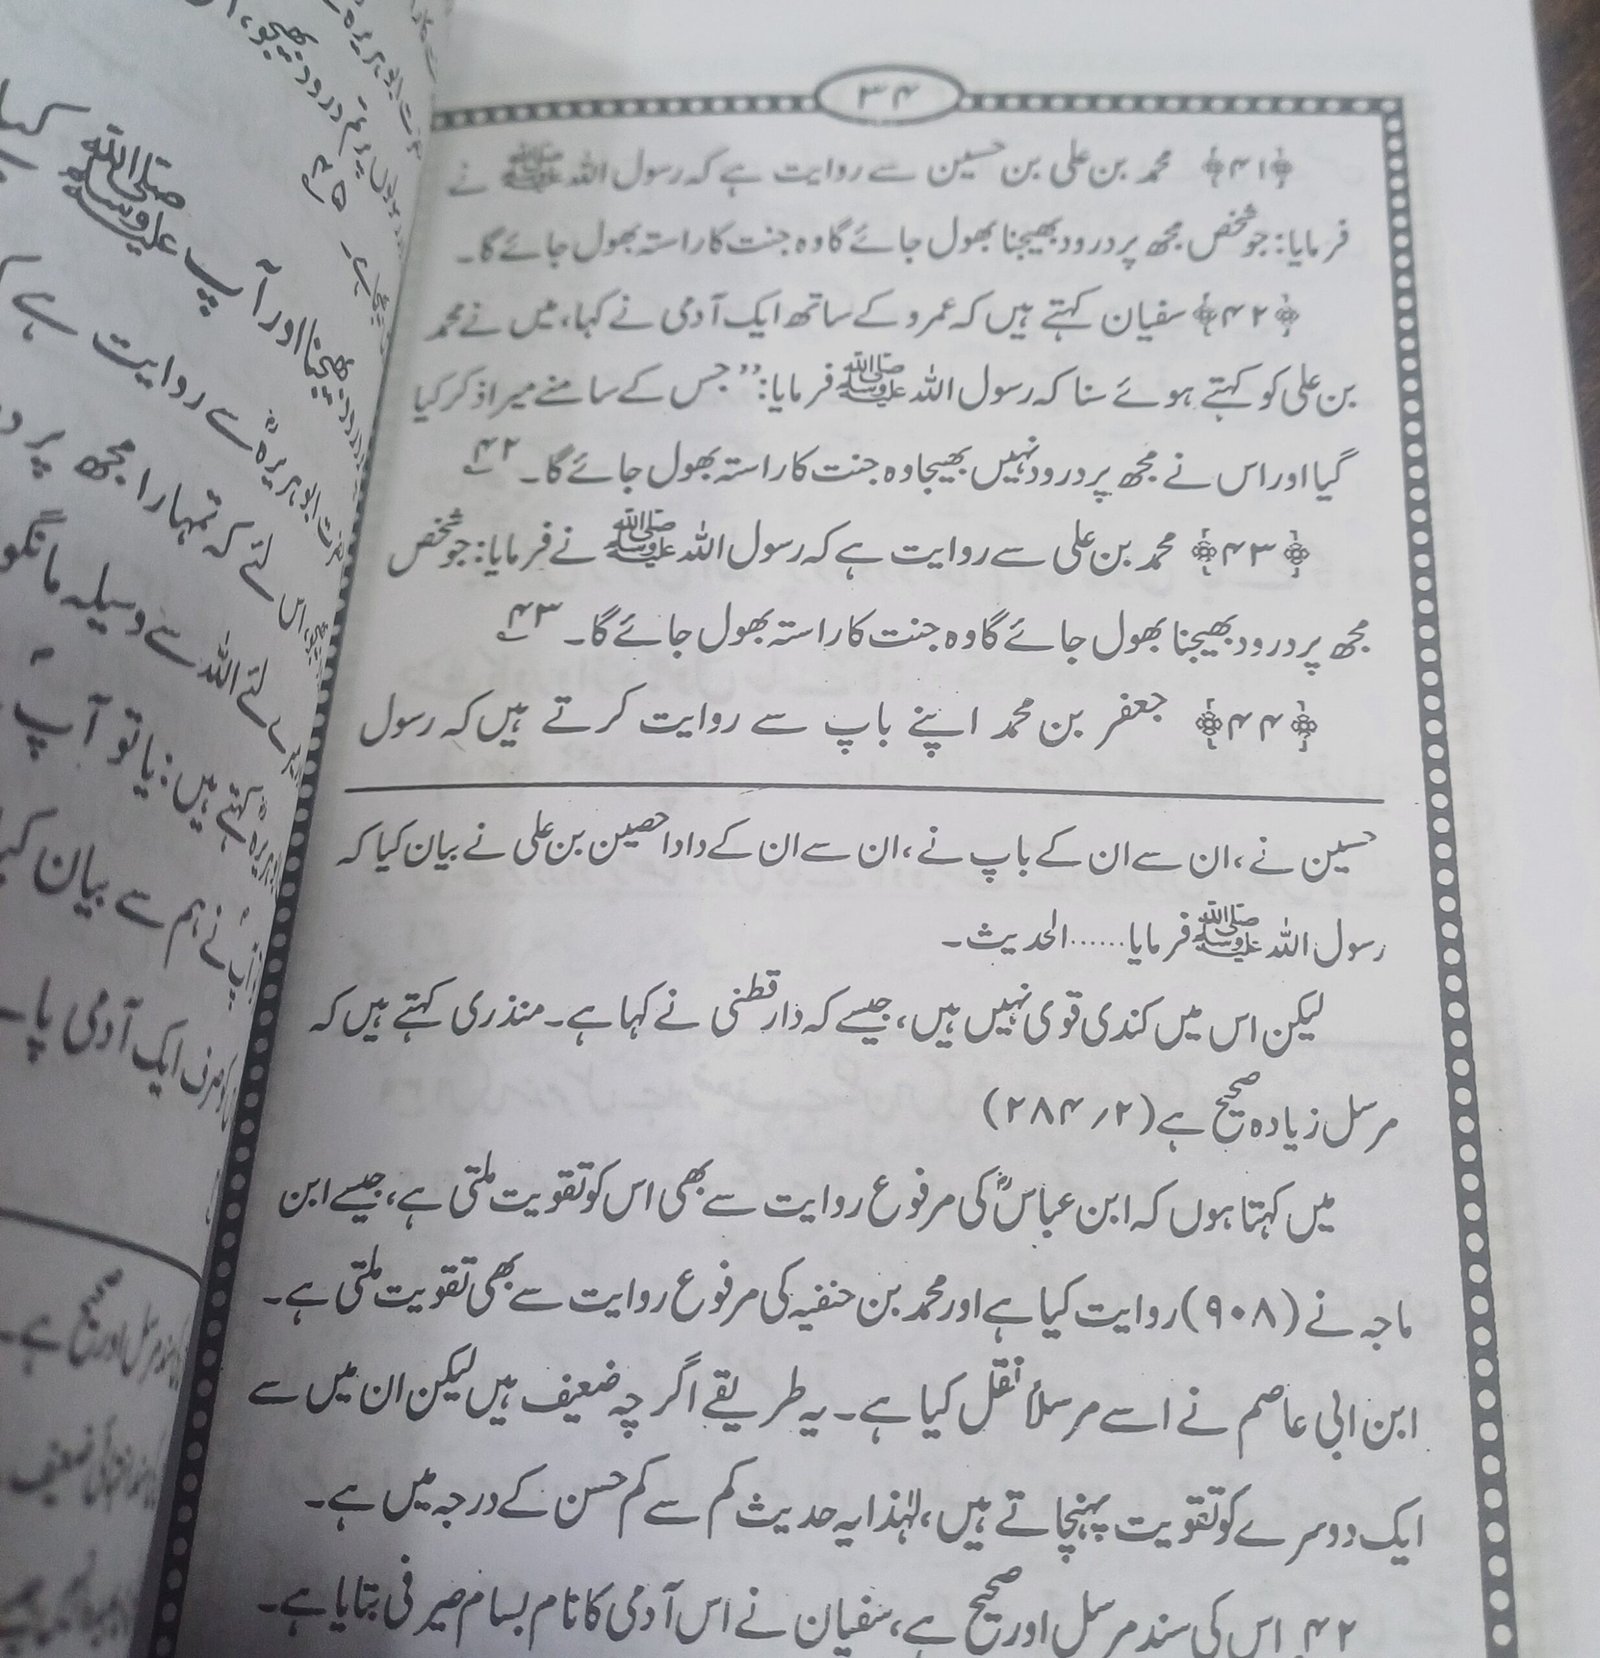 ۳۴
﴿۴۱﴾ محمد بن علی بن حسین سے روایت ہے کہ رسول اللہ ﷺ نے
فرمایا: جو شخص مجھ پر درود بھیجنا بھول جائے گا وہ جنت کا راستہ بھول جائے گا۔
﴿۴۲﴾ سفیان کہتے ہیں کہ عمرو کے ساتھ ایک آدمی نے کہا، میں نے محمد
بن علی کو کہتے ہوئے سنا کہ رسول اللہ ﷺ فرمایا: ’’جس کے سامنے میرا ذکر کیا
گیا اور اس نے مجھ پر درود نہیں بھیجا وہ جنت کا راستہ بھول جائے گا۔ ۴۲
﴿۴۳﴾ محمد بن علی سے روایت ہے کہ رسول اللہ ﷺ نے فرمایا: جو شخص
مجھ پر درود بھیجنا بھول جائے گا وہ جنت کا راستہ بھول جائے گا۔ ۴۳
﴿۴۴﴾ جعفر بن محمد اپنے باپ سے روایت کرتے ہیں کہ رسول
حسین نے، ان سے ان کے باپ نے، ان سے ان کے دادا حصین بن علی نے بیان کیا کہ
رسول اللہ ﷺ فرمایا...... الحدیث۔
لیکن اس میں کندی قوی نہیں ہیں، جیسے کہ دارقطنی نے کہا ہے۔ منذری کہتے ہیں کہ
مرسل زیادہ صحیح ہے (۲؍۲۸۴)
میں کہتا ہوں کہ ابن عباسؓ کی مرفوع روایت سے بھی اس کو تقویت ملتی ہے، جیسے ابن
ماجہ نے (۹۰۸) روایت کیا ہے اور محمد بن حنفیہ کی مرفوع روایت سے بھی تقویت ملتی ہے۔
ابن ابی عاصم نے اسے مرسلاً نقل کیا ہے۔ یہ طریقے اگر چہ ضعیف ہیں لیکن ان میں سے
ایک دوسرے کو تقویت پہنچاتے ہیں، لہٰذا یہ حدیث کم سے کم حسن کے درجہ میں ہے۔
۴۲ اس کی سند مرسل اور صحیح ہے، سفیان نے اس آدمی کا نام بسام صیرفی بتایا ہے۔
پر تم درود بھیجو،
۳۵
ﷺ
بھیجنا اور آپ
ابو ہریرہؓ سے روایت ہے
اس لئے کہ تمہارا مجھ پر
لئے اللہ سے وسیلہ مانگو
کہتے ہیں: یا تو آپ
نے ہم سے بیان
صرف ایک آدمی پا
مرسل اور صحیح ہے۔
ضعیف